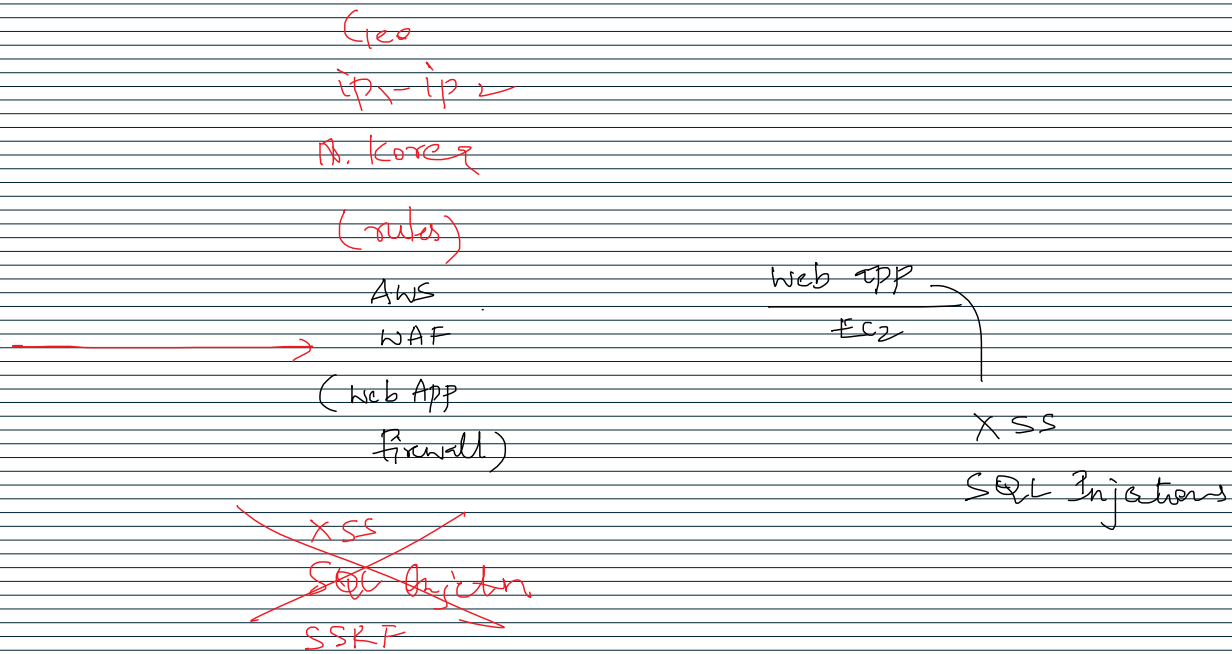 Geo
ip1 - ip2
N. Korea
(rules)
AWS
WAF
(Web App
Firewall)
XSS
SQL Injctn
SSRF
Web app
EC2
XSS
SQL Injections